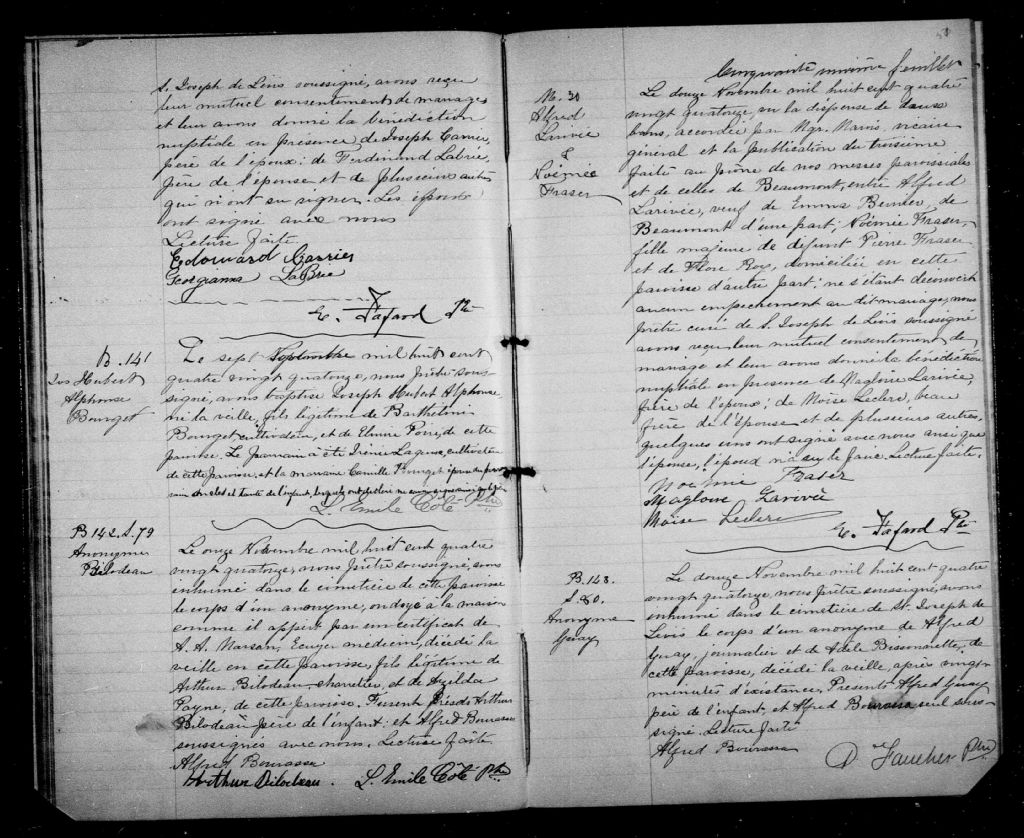 S. Joseph de Lévis soussigné, avons reçu
leur mutuel consentement de mariage
et leur avons donné la bénédiction
nuptiale en présence de Joseph Carrier
père de l'époux; de Ferdinand Labrie,
père de l'épouse et de plusieurs autres
qui n'ont su signer. Les époux
ont signé avec nous
Lecture faite
Edouward Carrier
Georgianna LaBrie
E. Fafard Ptre
B. 141
Jos Hubert
Alphonse
Bourget
Le sept Septembre mil huit cent
quatre vingt quatorze, nous prêtre sous-
signé, avons baptisé Joseph Hubert Alphonse
né la veille, fils légitime de Barthélémi
Bourget, cultivateur, et de Elmire Poiré, de cette
paroisse. Le parrain a été Irénée Lagueux, cultivateur
de cette paroisse, et la marraine Camille Bourget épouse du parrain
et tante de l'enfant, lesquels ont déclaré ne savoir signer
L. Emile Coté Ptre
B 142. S. 79
Anonyme
Bilodeau
Le onze Novembre mil huit cent quatre
vingt quatorze, nous prêtre soussigné, avons
inhumé dans le cimetière de cette paroisse
le corps d'un anonyme, ondoyé à la maison
comme il appert par un certificat de
A. A. Marsan, Ecuyer médecin, décédé la
veille en cette paroisse, fils légitime de
Arthur Bilodeau, charretier, et de Azelda
Payne, de cette paroisse. Furent présents Arthur
Bilodeau père de l'enfant; et Alfred Bourassa
soussignés avec nous. Lecture faite
Alfred Bourassa
Arthur Bilodeau. L. Emile Coté Ptre
51
Cinquante unième feuillet
M. 30
Alfred
Larivée
&
Noémée
Fraser
Le douze Novembre mil huit cent quatre
vingt quatorze, vu la dispense de deux
bans, accordée par Mgr. Marois, vicaire
général et la publication du troisième
faite au prône de nos messes paroissiales
et de celles de Beaumont, entre Alfred
Larivée, veuf de Emma Bernier, de
Beaumont d'une part; Noémie Fraser,
fille majeure de défunt Pierre Fraser
et de Flore Roy, domiciliée en cette
paroisse d'autre part; ne s'étant découvert
aucun empêchement au dit mariage, nous
prêtre curé de S. Joseph de Lévis soussigné
avons reçu leur mutuel consentement de
mariage et leur avons donné la bénédiction
nuptiale en présence de Magloire Larivée,
frère de l'époux; de Moïse Leclerc, beau
frère de l'épouse et de plusieurs autres,
quelques uns ont signé avec nous ainsi que
l'épouse, l'époux n'a su le faire. Lecture faite.
Noémie Fraser
Magloire Larivée
Moïse Leclerc
E. Fafard Ptre
B. 143.
S. 80.
Anonyme
Guay
Le douze Novembre mil huit cent quatre
vingt quatorze, nous prêtre soussigné, avons
inhumé dans le cimetière de St. Joseph de
Lévis le corps d'un anonyme de Alfred
Guay, journalier et de Adèle Bissonnette, de
cette paroisse, décédé la veille, après vingt
minutes d'existance. Présents Alfred Guay
père de l'enfant, et Alfred Bourassa seul sous-
signé. Lecture faite
Alfred Bourassa
D Faucher Ptre